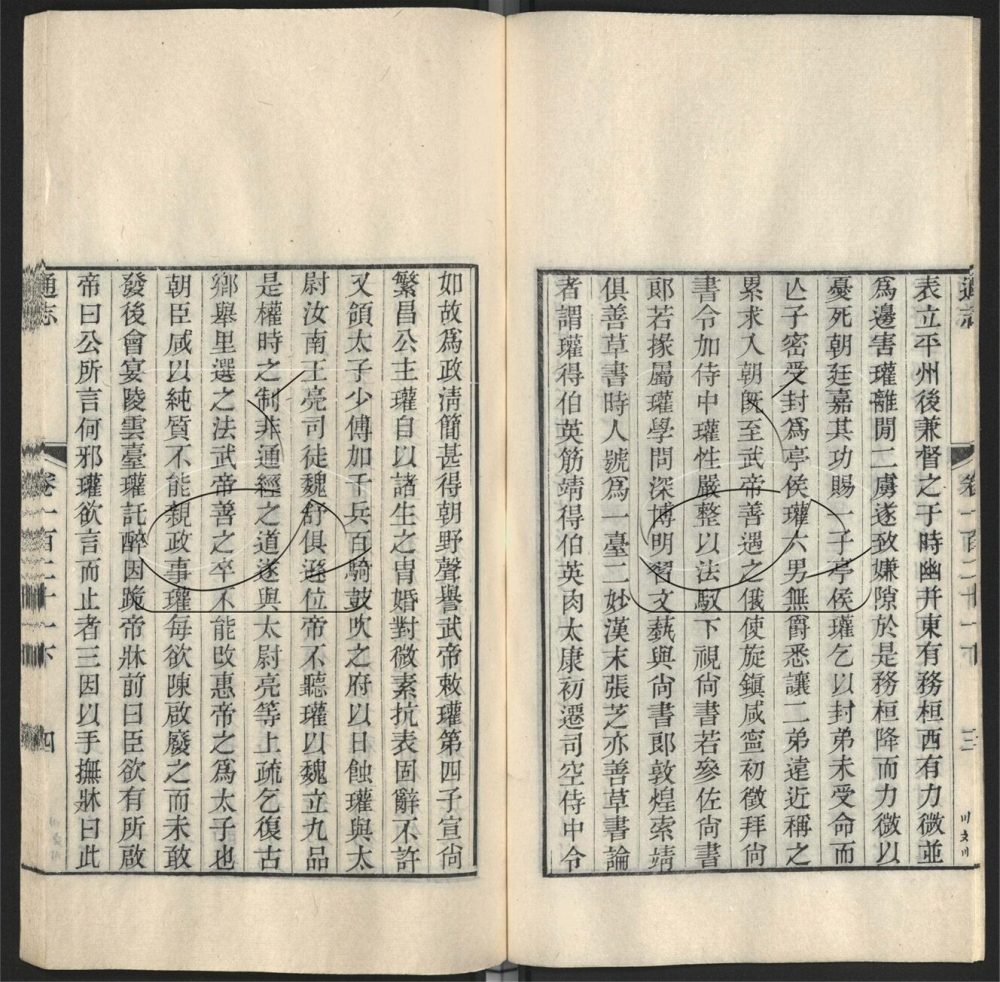 表立平州後兼督之于時幽并東有務桓西有力微並
爲邊害瓘離閒二虜遂致嫌隙於是務桓降而力微以
憂死朝廷嘉其功賜一子亭侯瓘乞以封弟未受命而
亾子密受封爲亭侯瓘六男無爵悉讓二弟遠近稱之
累求入朝旣至武帝善遇之俄使旋鎭咸寍初徵拜尙
書令加侍中瓘性嚴整以法馭下視尙書若參佐尙書
郎若掾屬瓘學問深博明習文藝與尙書郎敦煌索靖
俱善草書時人號爲一臺二妙漢末張芝亦善草書論
者謂瓘得伯英筋靖得伯英肉太康初遷司空侍中令
如故爲政淸簡甚得朝野聲譽武帝敕瓘第四子宣尙
繁昌公主瓘自以諸生之冑婚對微素抗表固辭不許
又領太子少傅加千兵百騎鼓吹之府以日蝕瓘與太
尉汝南王亮司徒魏舒俱遜位帝不聽瓘以魏立九品
是權時之制非通經之道遂與太尉亮等上疏乞復古
鄉舉里選之法武帝善之卒不能改惠帝之爲太子也
朝臣咸以純質不能親政事瓘每欲陳啟廢之而未敢
發後會宴陵雲臺瓘託醉因跪帝牀前曰臣欲有所啟
帝曰公所言何邪瓘欲言而止者三因以手撫牀曰此
通志 卷一百二十一下 四